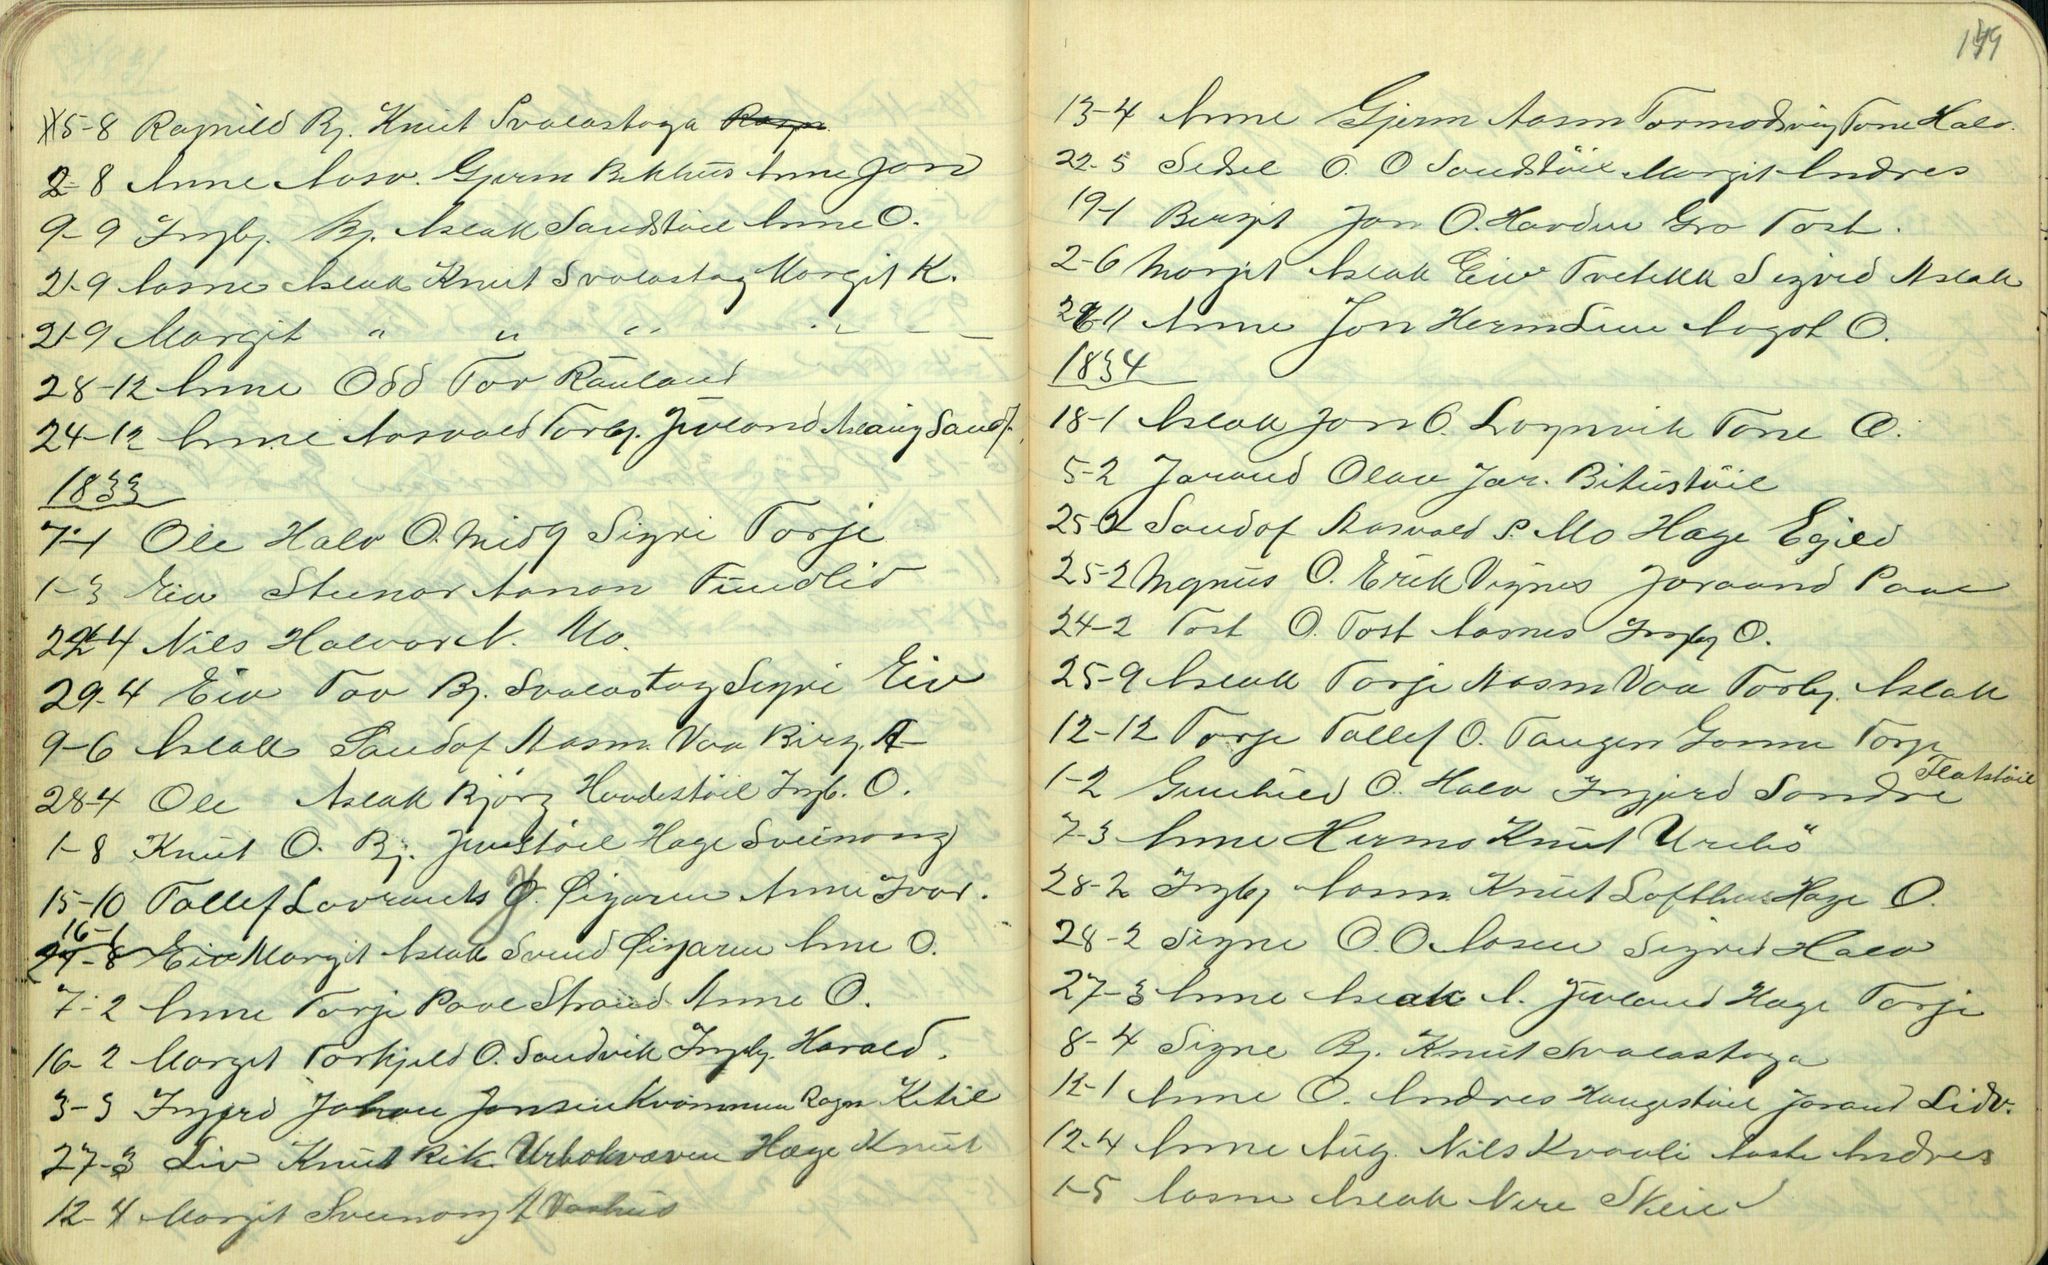 5-8 Ragnild Bj. Knut Svalastoga
2-8 Anne Aasv. Gjerm Bekhus Anne Jon
9-9 Ingbj. Bj. Aslak Sandstöil Anne O.
21-9 Aasne Aslak Knut Svalastog Margit K.
21-9 Margit " " " " - -
28-12 Anne Odd Tov Rauland
24-12 Anne Aasvald Torbj. Juvland Aslaug Sandf.
1833
7-1 Ole Halv O. Midg Sigri Torje
1-3 Eiv Steinar Aanon Fundlid
4 Nils Halvor N. Mo.
29-4 Eiv Tov Bj. Svalastog Sigri Eiv
9-6 Aslak Sandof Aasm. Vaa Birg. A
28-4 Ole Aslak Bjørg Hovdestöil Ingb. O.
1-8 Knut O. Bj. Juvstöil Hage Sveinong
15-10 Tallef Lavrants O. Øigaren Anne Ivar.
16-1
27-8 Eiv Margit Aslak Svend Øigaren Ane O.
7-2 Anne Torje Paal Strand Anne O.
16-2 Margit Torkjeld O. Sandvik Ingbj. Harald.
3-3 Ingjerd Johan Jonsen Kvammen Ragn Ketil
27-3 Liv Knut Rik. Urbøkvæven Hæge Knut
12-4 Margit Sveinong A Vaahus
149
13-4 Anne Gjerm Aasm Tormodsvig Tone Halv.
22-5 Sedsel O. O Sandstöil Margit Andres
19-1 Bergit Jon O. Havden Gro Tost.
2-6 Margit Aslak Eiv Tveitekk Sigrid Aslak
11 Anne Jon Herm Lien Aagot O.
1834
18-1 Aslak Jon O. Lognvik Tone O.
5-2 Jarand Olav Jar. Bitustöil
25-2 Sandof Aasvald S. Mo Hæge Egild
25-2 Mgnus O. Erik Vignes Joraand Paal
24-2 Tost O. Tost Aasnes Ingbj O.
25-9 Aslak Torje Aasm Vaa Torbj. Aslak
12-12 Torje Tallef O. Tangen Gonne Torje
1-2 Gunhild O. Halv Ingjerd Sondre Flatstöil
7-3 Anne Hermo Knut Urebö
28-2 Ingbj Aasm. Knut Lofthus Hæge O.
28-2 Signe O. O Aasen Sigrid Halv
27-3 Anne Aslak A. Juvland Hage Torje
8-4 Signe Bj. Knut Svalastoga
12-1 Anne O. Andres Haugestöil Jorand Lidv.
12-4 Anne Aug. Nils Kvaali Aaste Andres
1-5 Aasne Aslak Nere Skeie